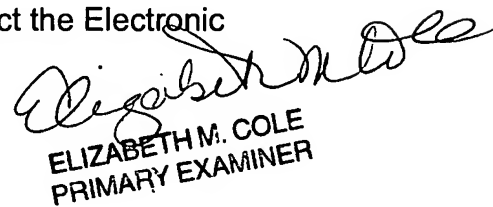 ct the Electronic
Elizabeth M Cole
ELIZABETH M. COLE
PRIMARY EXAMINER